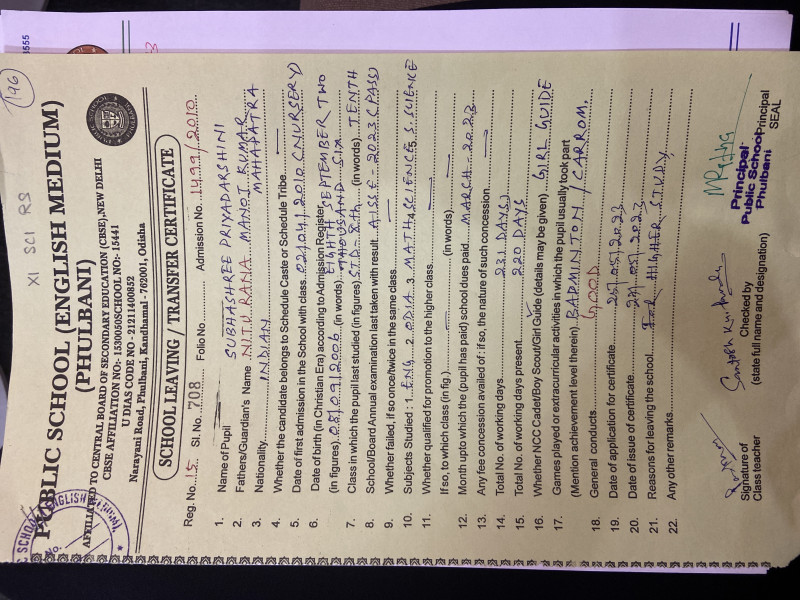 196
XI SCI RS
PUBLIC SCHOOL (ENGLISH MEDIUM)
(PHULBANI)
AFFILIATED TO CENTRAL BOARD OF SECONDARY EDUCATION (CBSE), NEW DELHI
CBSE AFFILIATION NO:- 1530050SCHOOL NO:- 15441
U DIAS CODE NO - 21211400852
Narayani Road, Phulbani, Kandhamal - 762001, Odisha
SCHOOL LEAVING / TRANSFER CERTIFICATE
Reg. No. 15 Sl. No. 708 Folio No. Admission No. 1499/2010
1. Name of Pupil SUBHASHREE PRIYADARSHINI
2. Fathers/Guardian's Name NITU RANA MANOJ KUMAR MAHAPATRA
3. Nationality INDIAN
4. Whether the candidate belongs to Schedule Caste or Schedule Tribe
5. Date of first admission in the School with class. 02/04/2010 (NURSERY)
6. Date of birth (in Christian Era) according to Admission Register
(in figures) 08/09/2006 (in words) EIGHTH SEPTEMBER TWO THOUSAND SIX
7. Class in which the pupil last studied (in figures) STD-X th (in words) TENTH
8. School/Board Annual examination last taken with result. AISSE-2023 (PASS)
9. Whether failed, if so once/twice in the same class.
10. Subjects Studied : 1. ENG 2. ODIA 3. MATH 4. SCIENCE 5. S.SCIENCE
11. Whether qualified for promotion to the higher class
If so, to which class (in fig.) (in words)
12. Month upto which the (pupil has paid) school dues paid MARCH-2023
13. Any fee concession availed of : if so, the nature of such concession
14. Total No. of working days. 231 DAYS)
15. Total No. of working days present. 220 DAYS
16. Whether NCC Cadet/Boy Scout/Girl Guide (details may be given) GIRL GUIDE
17. Games played or extracurricular activities in which the pupil usually took part
(Mention achievement level therein) BADMINTON / CARROM,
18. General conducts. GOOD
19. Date of application for certificate 26/05/2023
20. Date of issue of certificate 27/05/2023
21. Reasons for leaving the school. For HIGHER STUDY
22. Any other remarks.
Signature of
Class teacher
Checked by
(state full name and designation)
Principal
SEAL
Principal
Public School
Phulbani